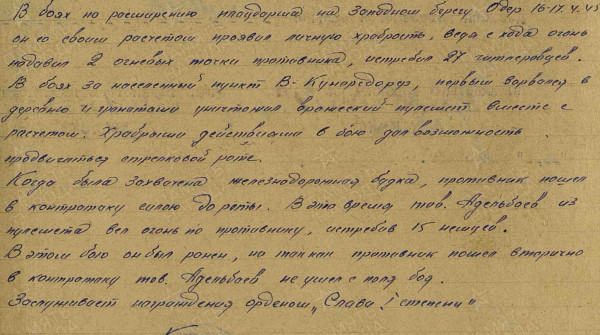 В боях по расширению плацдарма на западном берегу Одер 16-17.4.45
он со своим расчетом проявил личную храбрость, ведя с хода огонь
подавил 2 огневых точки противника, истребил 27 гитлеровцев.
В боях за населенный пункт В-Кунерсдорф, первым ворвался в
деревню и гранатами уничтожил вражеский пулемет вместе с
расчетом. Храбрыми действиями в бою дал возможность
продвигаться стрелковой роте.
Когда была захвачена железнодорожная будка, противник пошел
в контратаку силою до роты. В это время тов. Адельбаев из
пулемета вел огонь по противнику, истребив 15 немцев.
В этом бою он был ранен, но так как противник пошел вторично
в контратаку тов. Адельбаев не ушел с поля боя.
Заслуживает награждения орденом „Слава I степени"